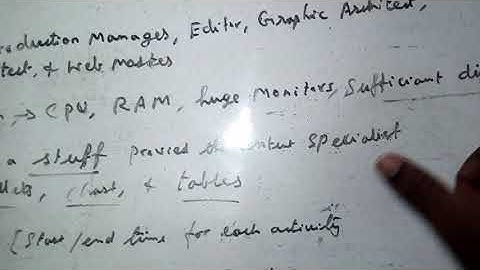 roduction Manages, Editor, Graphic Architect,
& Web Mastes
CPU, RAM, huge Monitors, Sufficiant di
a stuff provied the Specialist
& tables
[Start/end time for each activity